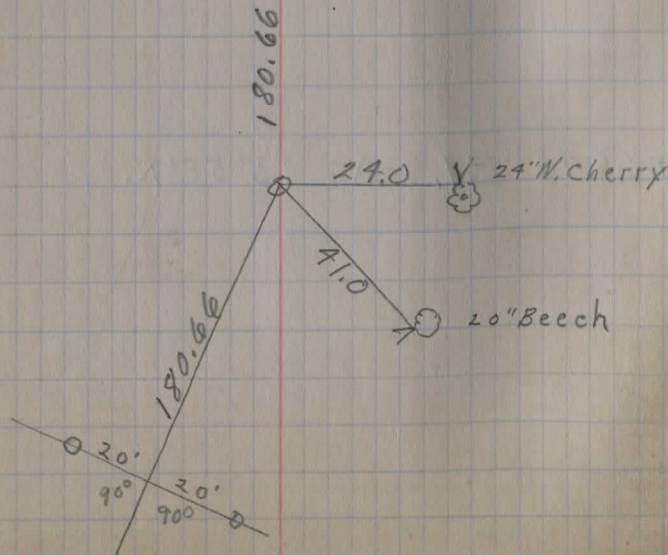 180.66
24.0 24"W.Cherry
41.0
20"Beech
180.66
20'
90°
20'
90°